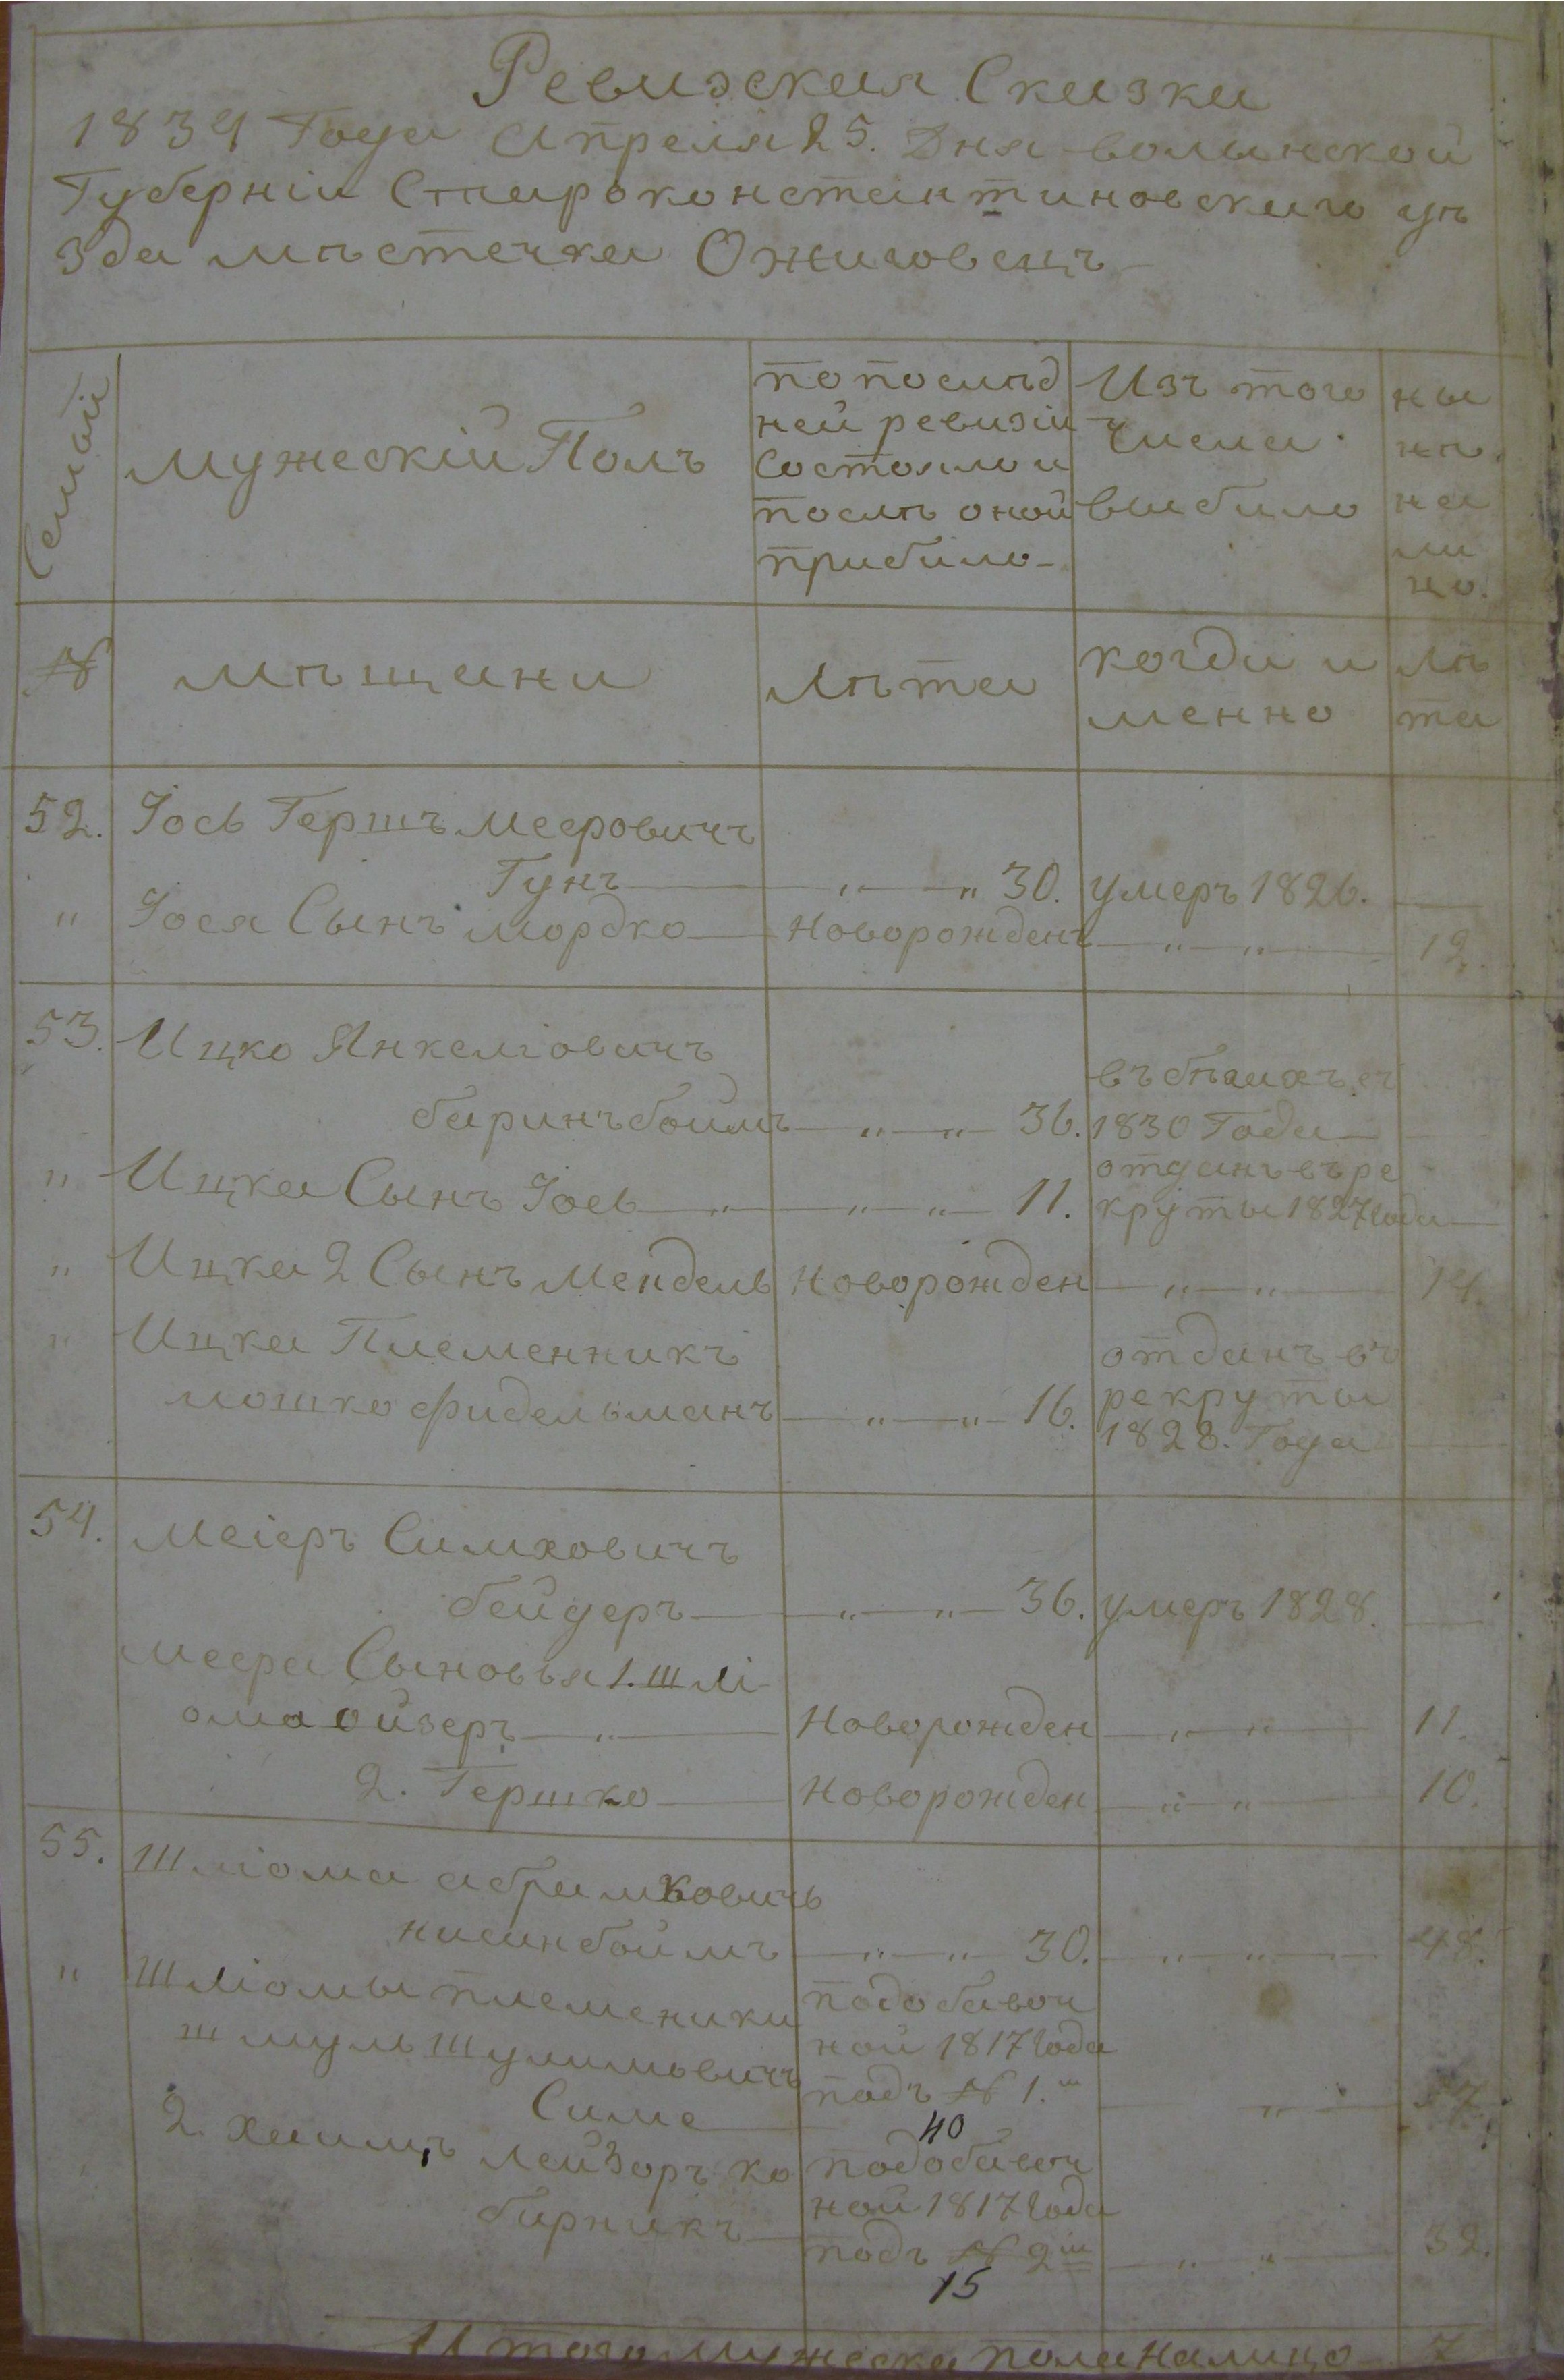 Ревизская Сказка
1834 Года Апреля 25. Дня волынской
Губерніи Староконстантиновскаго уѣ
зда мѣстечка Ожиговець
Семьи
мужескій Полъ
по послѣд
ней ревизіи
состояло и
послѣ оной
прибило
Изъ того
числа
выбило
ны
нѣ
на
ли
цо.
№
мѣщани
лѣта
когда и
менно
лѣ
та
52. Іось Гершъ Мееровичъ
Гунъ — " — " 30. умеръ 1826. —
" Іося Сынъ мордко — Новорожденъ — " — " — 12.
53. Ицко Янкеліовичъ
въ бѣгахъ съ
баринъбоймъ — " — " — 36. 1830 Года —
отданъ въ ре
" Ицка Сынъ Іось — " — " — " — 11. круты 1827 Года —
" Ицка 2 Сынъ Мендель Новорожден — " — " — 14.
" Ицка Племенникъ
отданъ въ
мошко фидельманъ — " — " — 16. рекруты
1828. Года —
54. Меіеръ Симховичъ
бейдеръ — " — " — 36. умеръ 1828. —
Меера Сыновья 1. Шлі
ома ойзеръ — " — Новорожден — " — " — 11.
2. Гершко — Новорожден — " — " — 10.
55. Шліома абрамковичь
нисинбоймъ — " — " 30. — " — " — 48.
" Шліомы племеники
подобавоч
ной 1817 Года
шмуль Шулимовичъ
подъ № 1.
Симе — " —
40
2. хаимъ Лейзоръ ко
подобавоч
ной 1817 Года
бирникъ —
подъ № 2 — " — " — 32.
15
Итого мужеска пола налицо 7